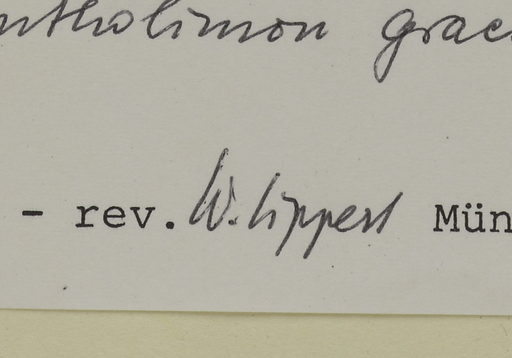 ntholimon grae
- rev. W. Lippert Mün